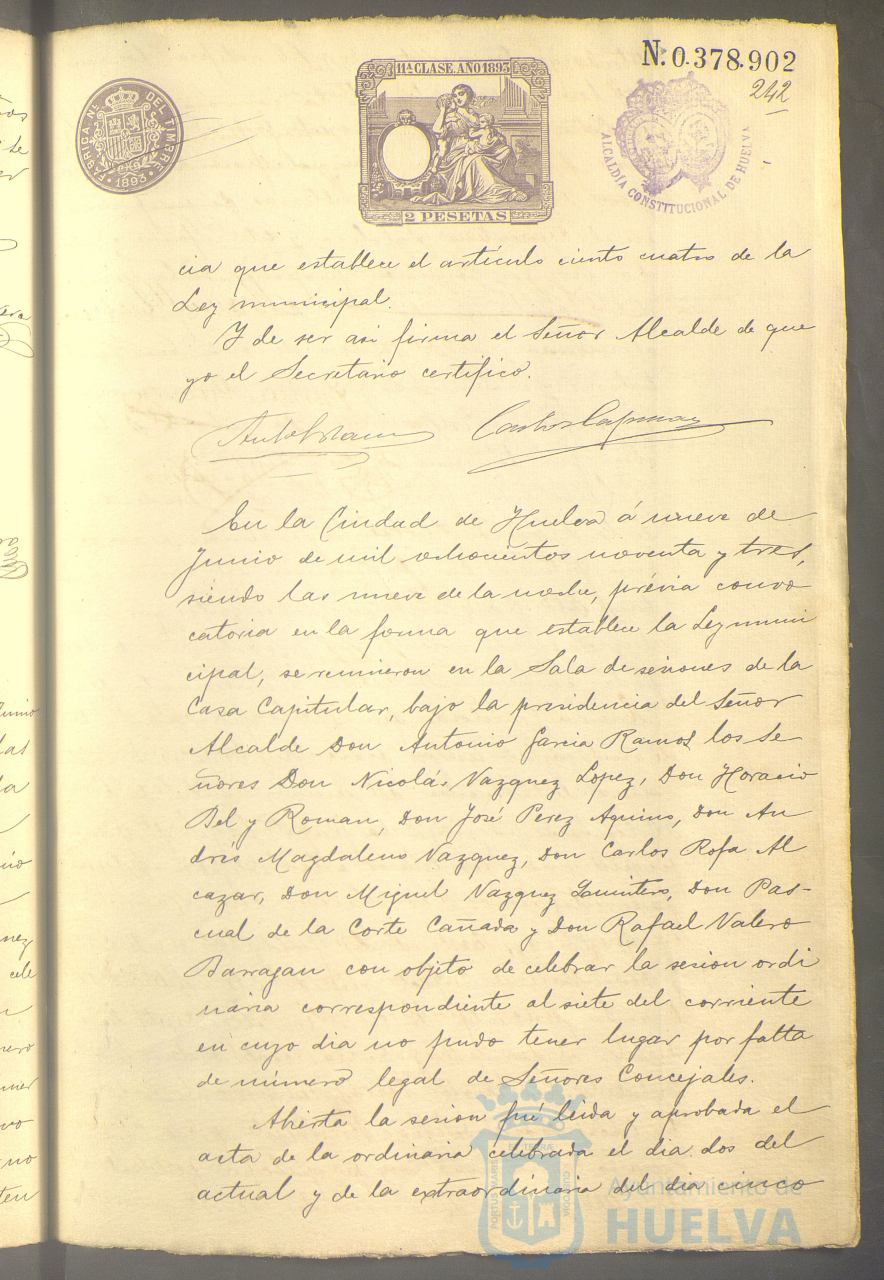 N. 0.378.902
242
11ª CLASE. AÑO 1893
FABRICA Nª. DEL TIMBRE
1893
2 PESETAS
ALCALDÍA CONSTITUCIONAL DE HUELVA
cia que establece el artículo ciento cuatro de la
Ley municipal.
Y de ser asi firma el Señor Alcalde de que
yo el Secretario certifico.
En la Ciudad de Huelva á nueve de
Junio de mil ochocientos noventa y tres,
siendo las nueve de la noche, prévia convo
catoria en la forma que establece la Ley muni
cipal, se reunieron en la Sala de sesiones de la
Casa Capitular, bajo la presidencia del Señor
Alcalde Don Antonio Garcia Ramos los Se
ñores Don Nicolás Vazquez Lopez, Don Horacio
Bel y Roman, Don José Perez Aquino, Don An
drés Magdaleno Vazquez, Don Carlos Rofa Al
cazar, Don Miguel Vazquez Quintero, Don Pas-
cual de la Corte Cañada y Don Rafael Valero
Barragan con objeto de celebrar la sesion ordi
naria correspondiente al siete del corriente
en cuyo dia no pudo tener lugar por falta
de número legal de Señores Concejales.
Abierta la sesion fué leida y aprobada el
acta de la ordinaria celebrada el dia dos del
actual y de la extraordinaria del dia cinco
Ayuntamiento de
HUELVA